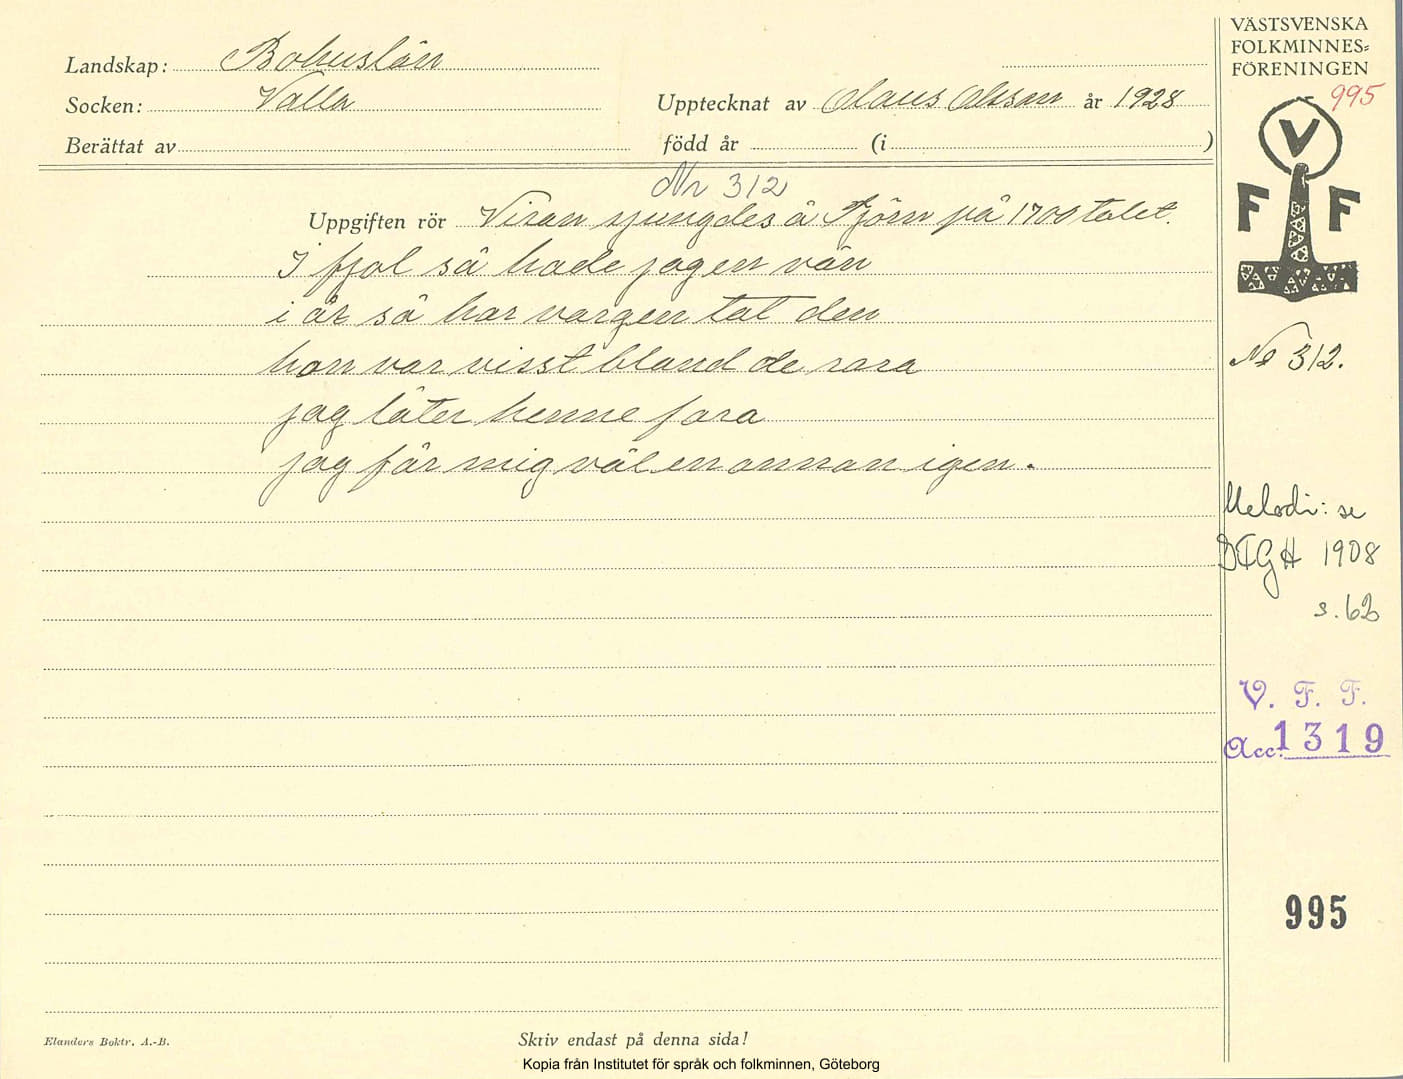 Landskap: Bohuslän
Socken: Valla
Upptecknat av Olaus Olsson år 1928
Berättat av
född år (i )
Nr 312
Uppgiften rör Visan sjungdes å Tjörn på 1700talet.
I fjol så hade jag en vän
i år så har vargen tat den
hon var visst bland de rara
jag låter henne fara
jag får mig väl en annan igen.
Elanders Boktr. A.-B.
Skriv endast på denna sida!
Kopia från Institutet för språk och folkminnen, Göteborg
VÄSTSVENSKA
FOLKMINNES=
FÖRENINGEN
995
V
F F
No 312.
Melodi: se
1908
s. 62
V. F. F.
Acc. 1319
995